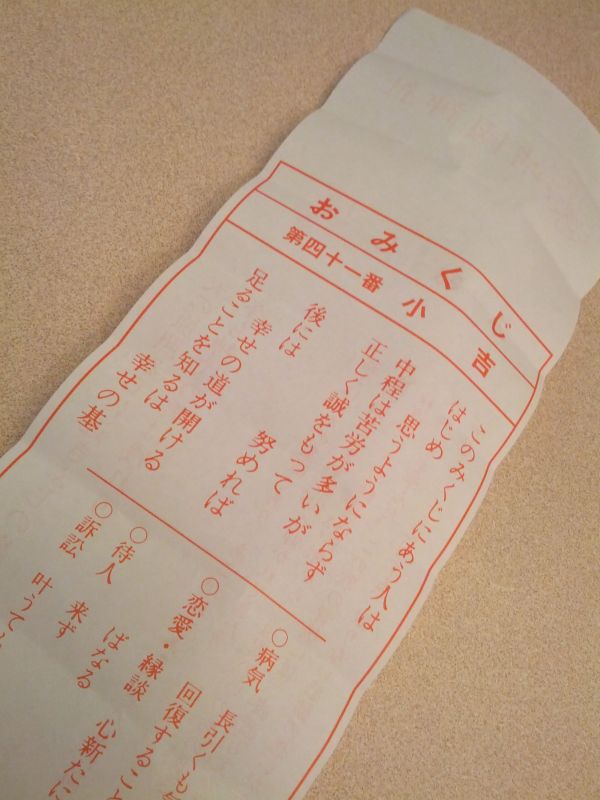 おみくじ
第四十一番 小吉
このみくじにあう人は
はじめ 思うようにならず
中程は苦労が多いが
正しく誠をもって 努めれば
後には 幸せの道が開ける
足ることを知るは 幸せの基
○病気 長引くも
回復すること
○恋愛・縁談 心新たに
ばなる
○待人 来ず
○訴訟 叶うても